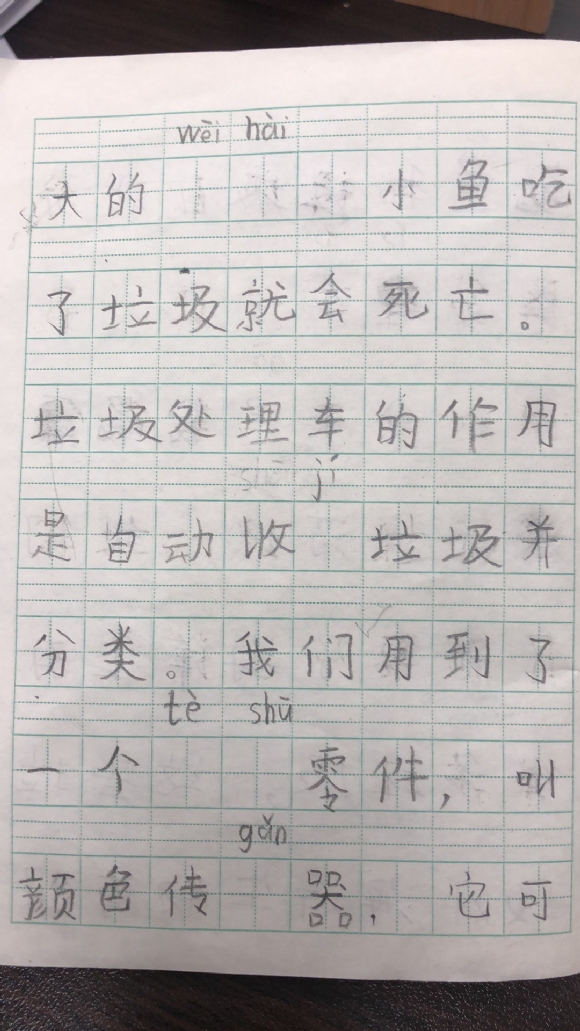 wēi hài
大的 小鱼吃
了垃圾就会死亡。
垃圾处理车的作用
jí
是自动收 垃圾并
分类。我们用到了
tè shū
一个 零件，叫
gǎn
颜色传 器，它可